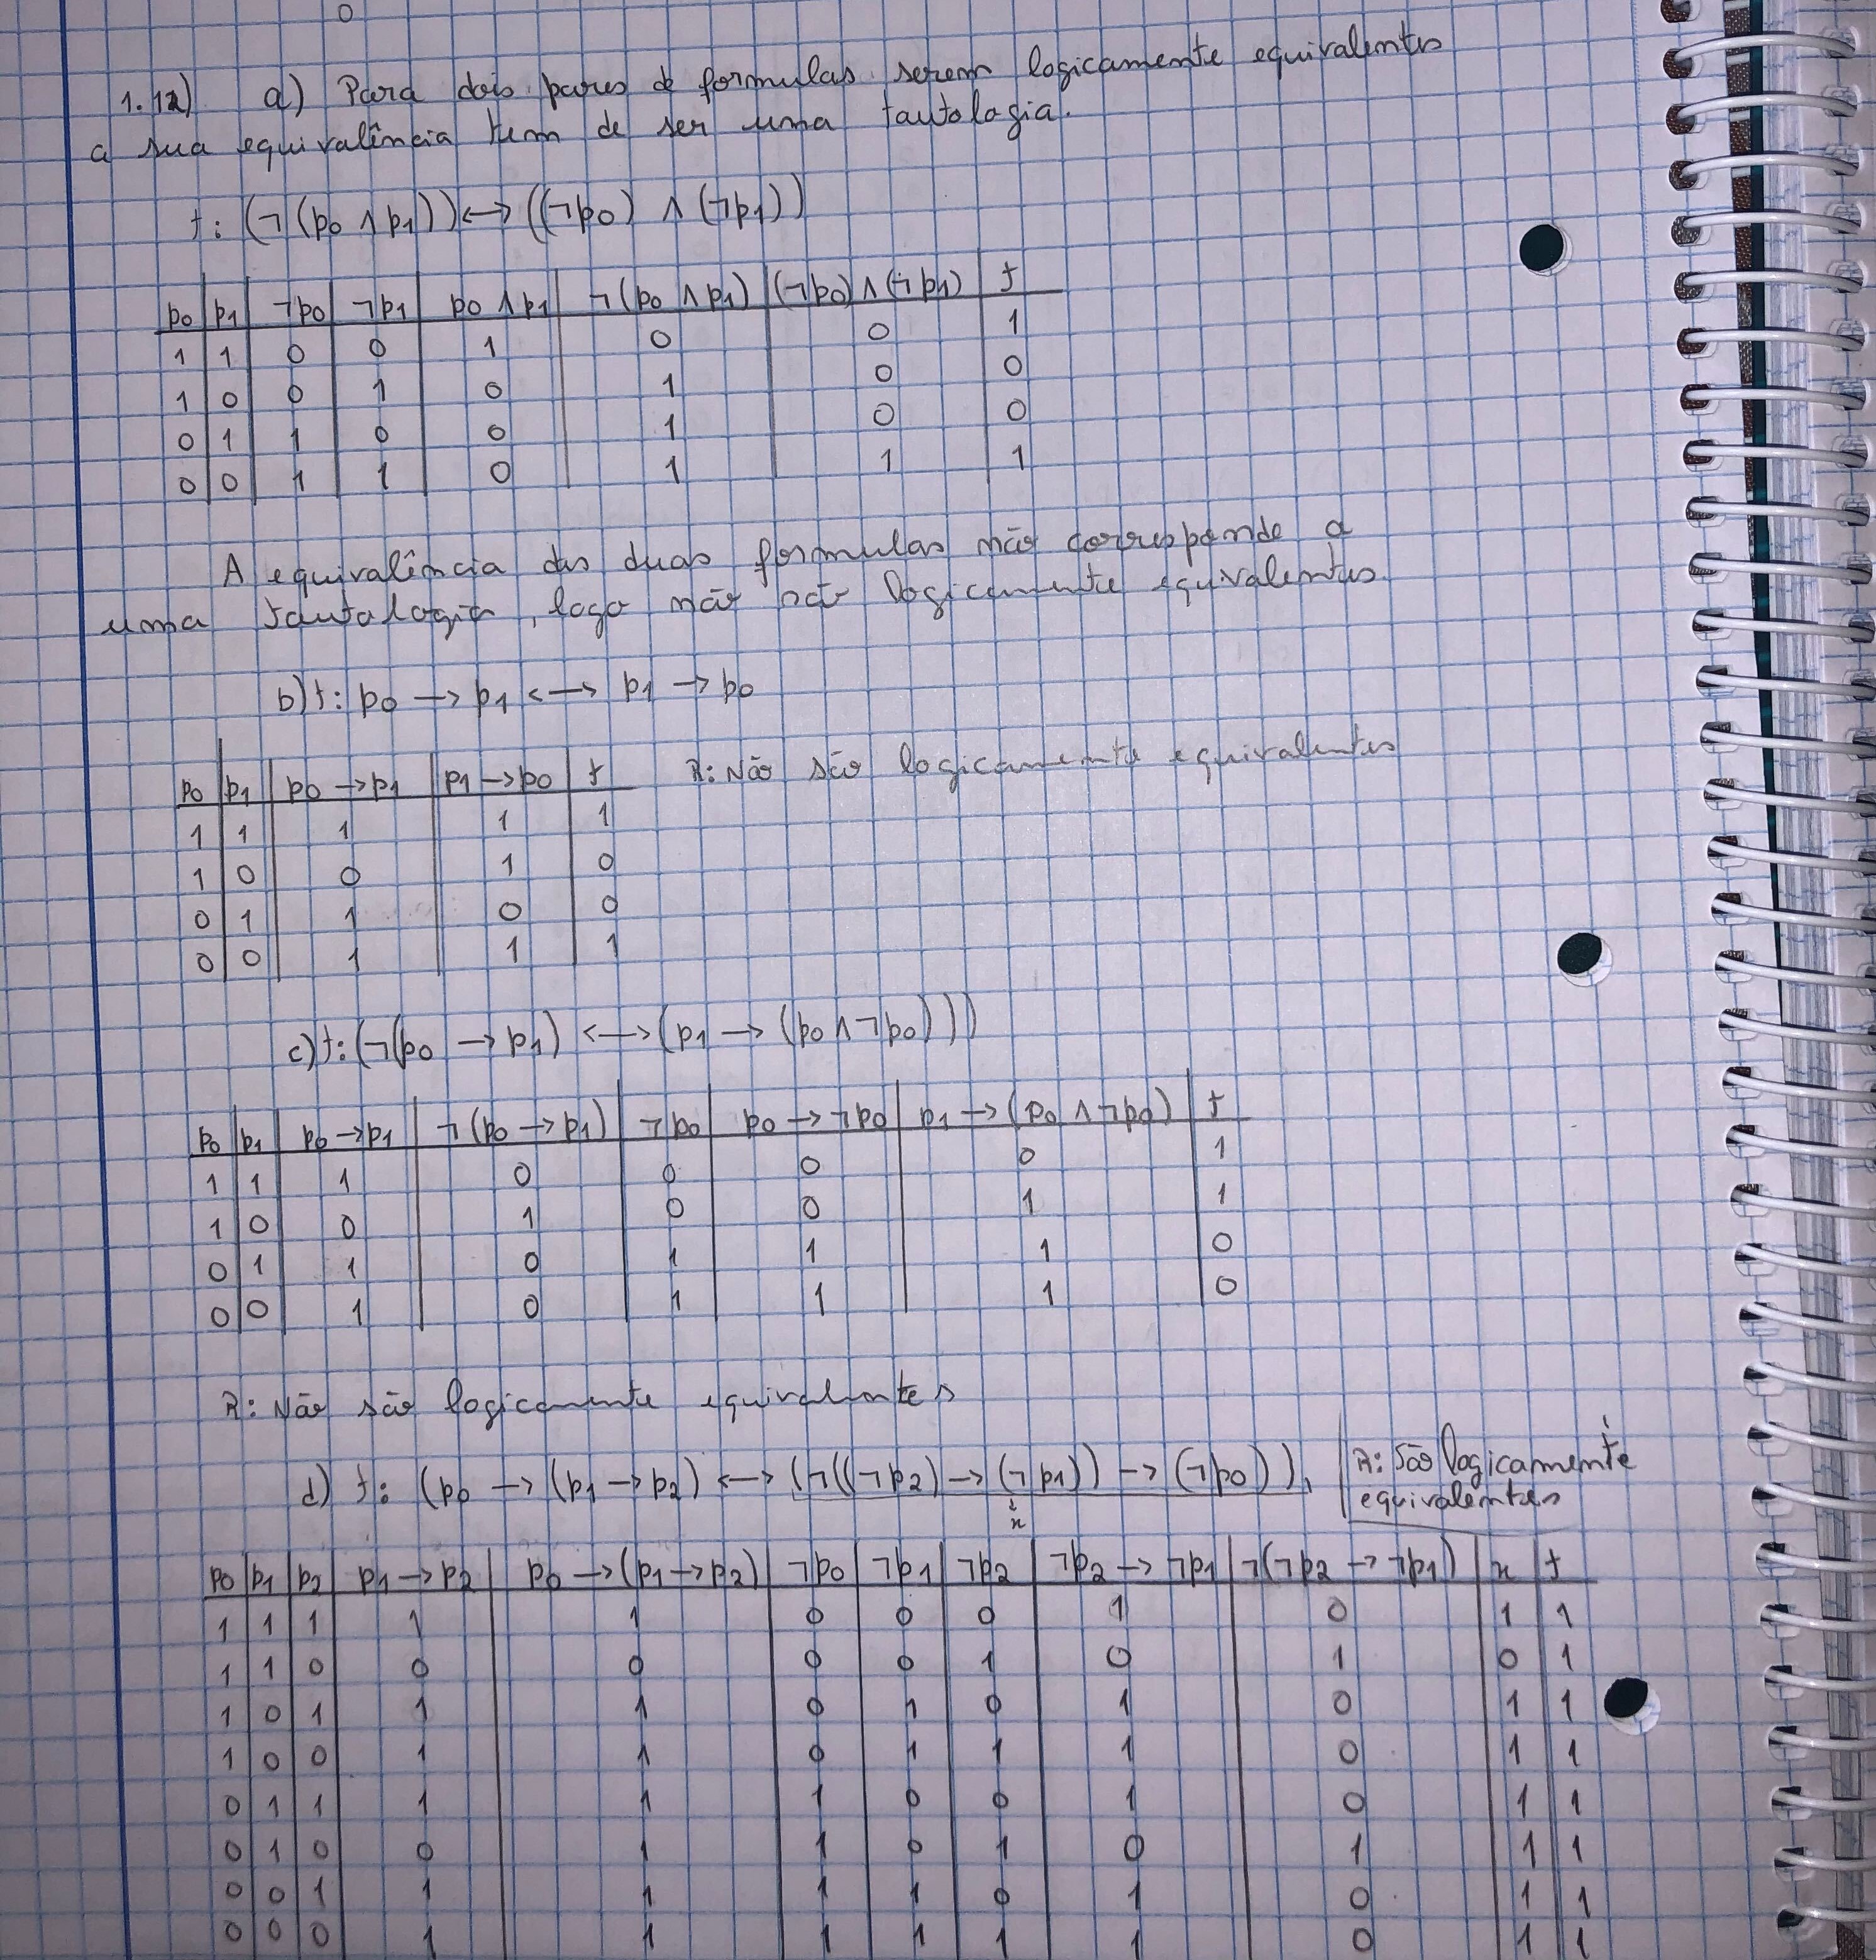 0
1.12) a) Para dois pares de formulas serem logicamente equivalentes
a sua equivalência tem de ser uma tautologia.
f: (¬(p0 ∧ p1)) ⟷ ((¬p0) ∧ (¬p1))
p0 | p1 | ¬p0 | ¬p1 | p0 ∧ p1 | ¬(p0 ∧ p1) | (¬p0) ∧ (¬p1) | f
1 | 1 | 0 | 0 | 1 | 0 | 0 | 1
1 | 0 | 0 | 1 | 0 | 1 | 0 | 0
0 | 1 | 1 | 0 | 0 | 1 | 0 | 0
0 | 0 | 1 | 1 | 0 | 1 | 1 | 1
A equivalência das duas formulas não corresponde a
uma tautologia, logo não são logicamente equivalentes.
b) f: p0 → p1 ⟷ p1 → p0
p0 | p1 | p0 → p1 | p1 → p0 | f
1 | 1 | 1 | 1 | 1
1 | 0 | 0 | 1 | 0
0 | 1 | 1 | 0 | 0
0 | 0 | 1 | 1 | 1
R: Não são logicamente equivalentes
c) f: (¬(p0 → p1) ⟷ (p1 → (p0 ∧ ¬p0)))
p0 | p1 | p0 → p1 | ¬(p0 → p1) | ¬p0 | p0 → ¬p0 | p1 → (p0 ∧ ¬p0) | f
1 | 1 | 1 | 0 | 0 | 0 | 0 | 1
1 | 0 | 0 | 1 | 0 | 0 | 1 | 1
0 | 1 | 1 | 0 | 1 | 1 | 1 | 0
0 | 0 | 1 | 0 | 1 | 1 | 1 | 0
R: Não são logicamente equivalentes
d) f: (p0 → (p1 → p2) ⟷ (¬((¬p2) → (¬p1)) → (¬p0)),
x
R: São logicamente
equivalentes
p0 | p1 | p2 | p1 → p2 | p0 → (p1 → p2) | ¬p0 | ¬p1 | ¬p2 | ¬p2 → ¬p1 | ¬(¬p2 → ¬p1) | x | f
1 | 1 | 1 | 1 | 1 | 0 | 0 | 0 | 1 | 0 | 1 | 1
1 | 1 | 0 | 0 | 0 | 0 | 0 | 1 | 0 | 1 | 0 | 1
1 | 0 | 1 | 1 | 1 | 0 | 1 | 0 | 1 | 0 | 1 | 1
1 | 0 | 0 | 1 | 1 | 0 | 1 | 1 | 1 | 0 | 1 | 1
0 | 1 | 1 | 1 | 1 | 1 | 0 | 0 | 1 | 0 | 1 | 1
0 | 1 | 0 | 0 | 1 | 1 | 0 | 1 | 0 | 1 | 1 | 1
0 | 0 | 1 | 1 | 1 | 1 | 1 | 0 | 1 | 0 | 1 | 1
0 | 0 | 0 | 1 | 1 | 1 | 1 | 1 | 1 | 0 | 1 | 1